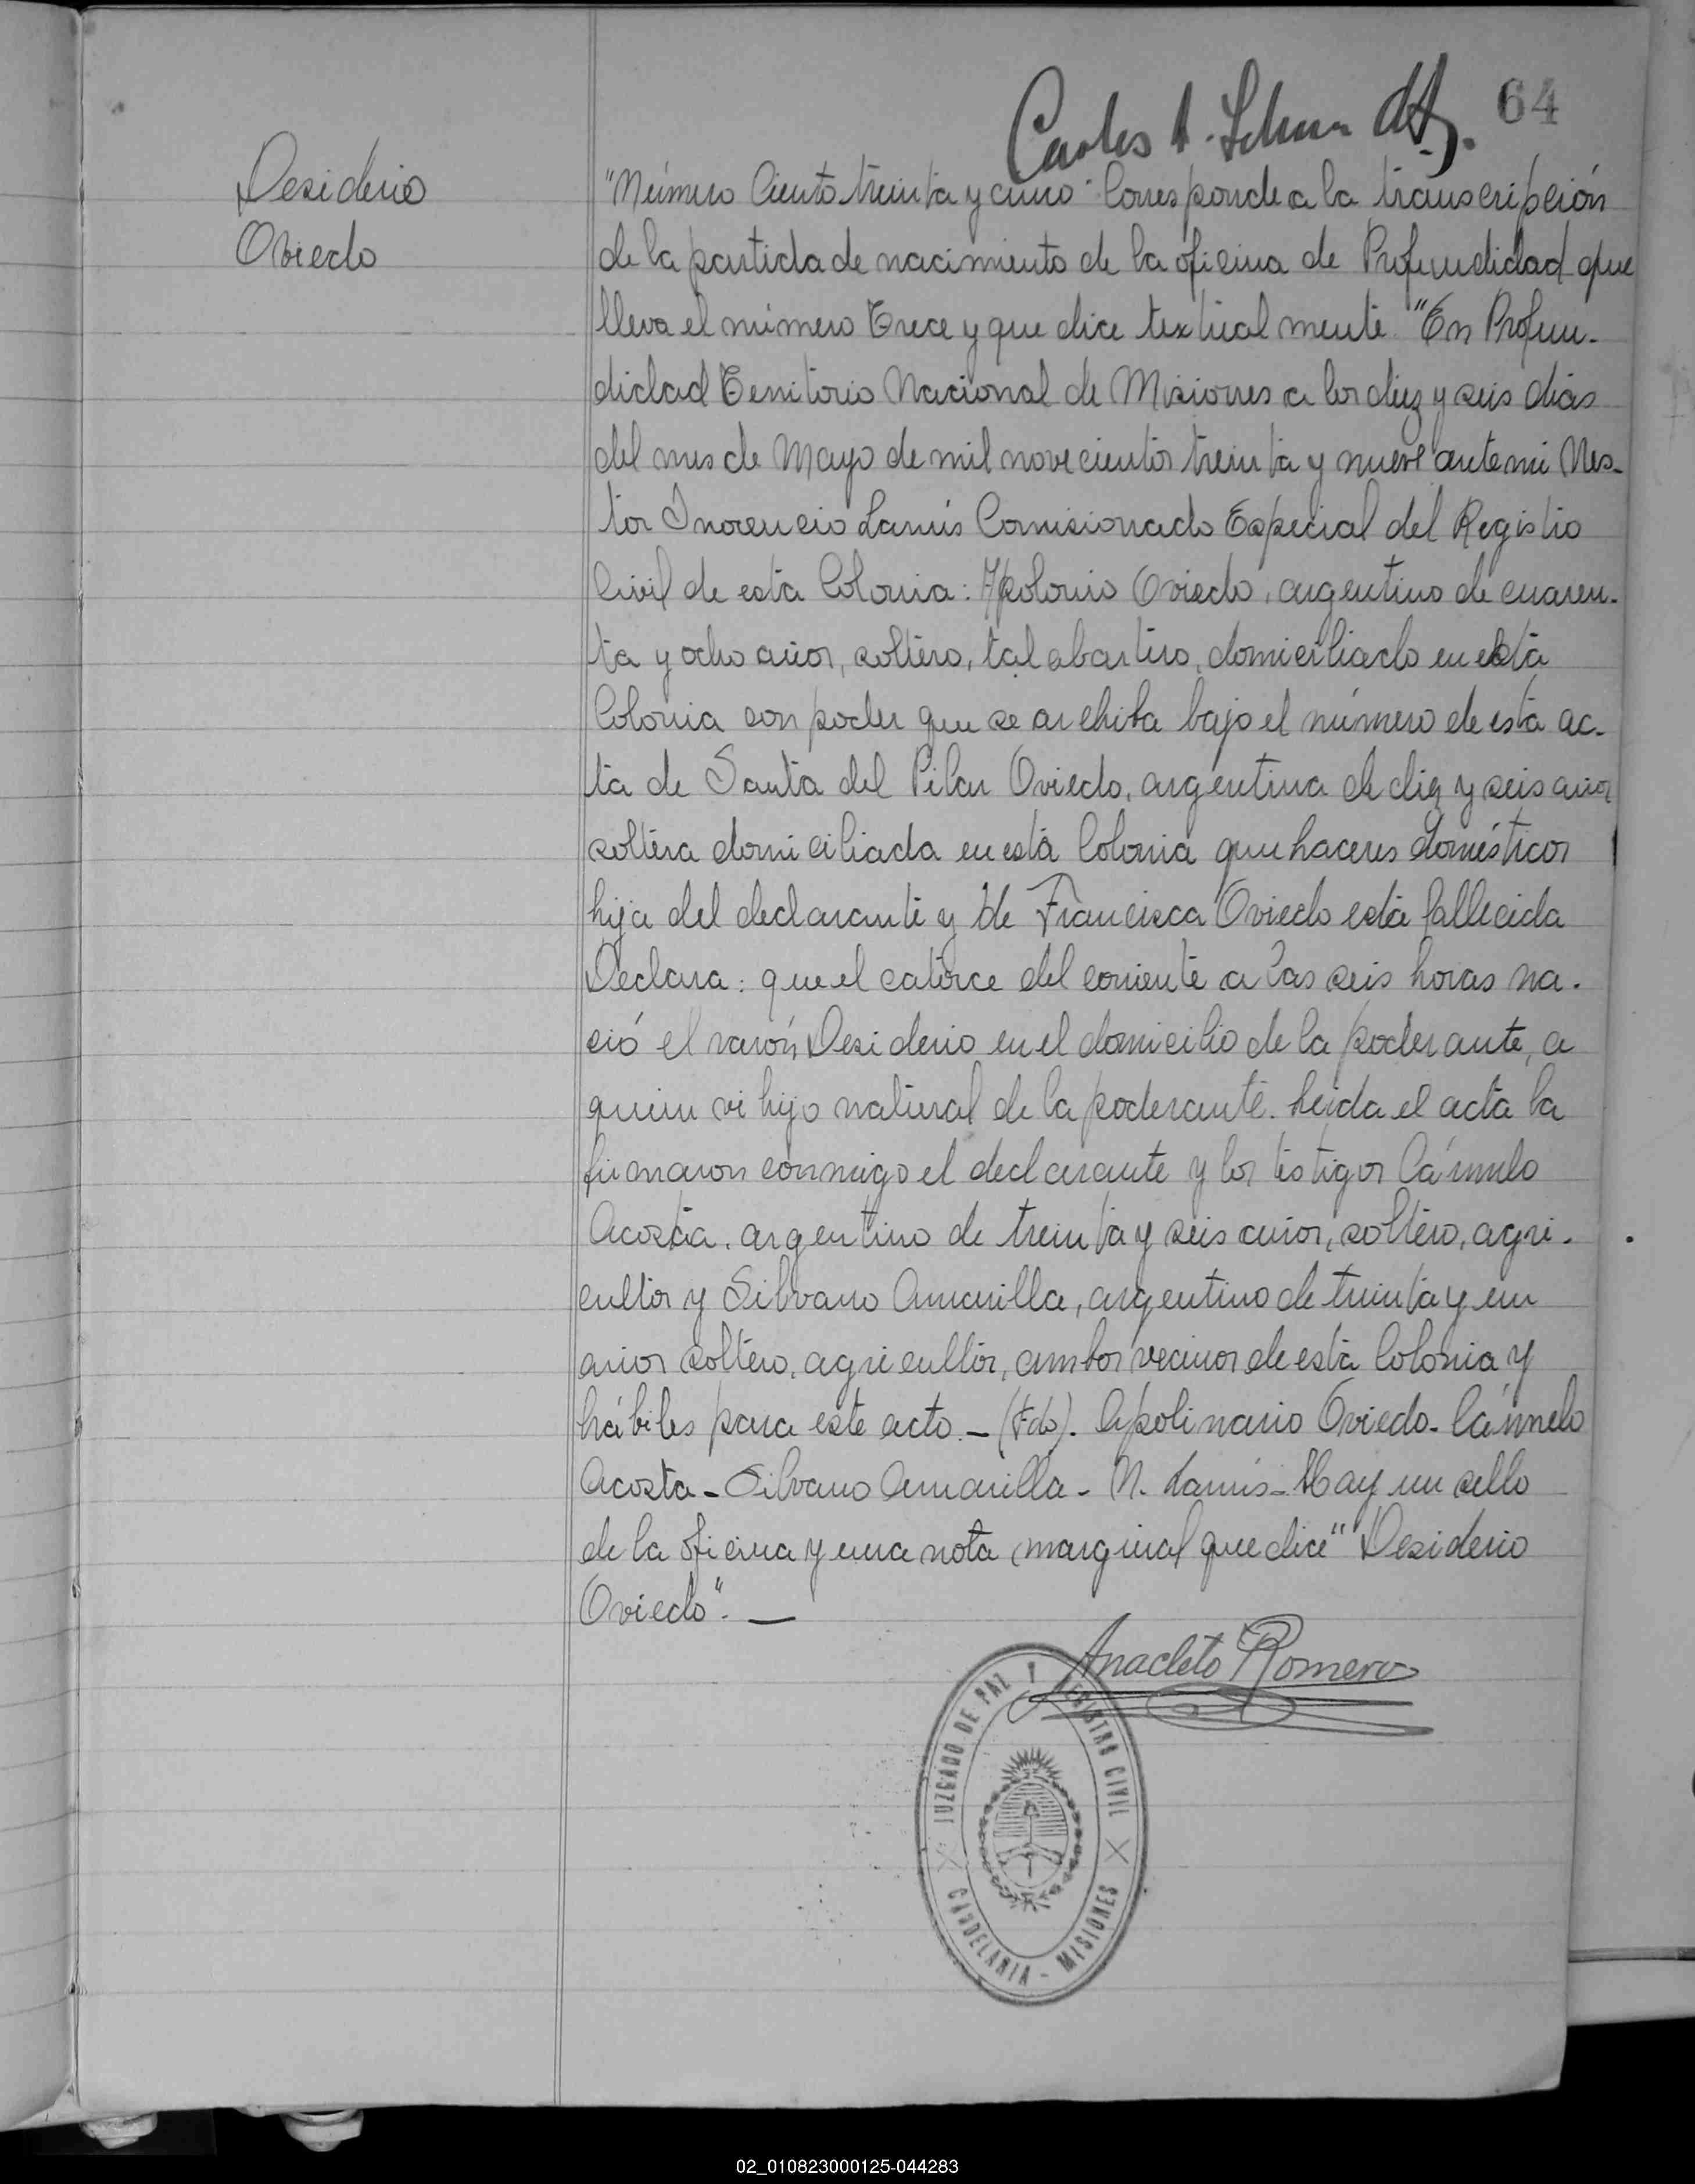 64
Desiderio
Oviedo
"Número Ciento treinta y cinco" Corresponde a la transcripción
de la partida de nacimiento de la oficina de Profundidad que
lleva el número Trece y que dice textualmente "En Profun-
didad Territorio Nacional de Misiones a los diez y seis dias
del mes de Mayo de mil novecientos treinta y nueve ante mi Nes-
tor Inocencio Lanús Comisionado Especial del Registro
Civil de esta Colonia: Apolonio Oviedo, argentino de cuaren-
ta y ocho años, soltero, talabartero, domiciliado en esta
Colonia con poder que se archiva bajo el número de esta ac-
ta de Santa del Pilar Oviedo, argentina de diez y seis años
soltera domiciliada en esta Colonia quehaceres domésticos
hija del declarante y de Francisca Oviedo esta fallecida
Declara: que el catorce del corriente a las seis horas na-
ció el varón Desiderio en el domicilio de la poderante, a
quien vi hijo natural de la poderante. Leida el acta la
firmaron conmigo el declarante y los testigos Cármelo
Acosta, argentino de treinta y seis años, soltero, agri-
cultor y Silvano Amarilla, argentino de treinta y un
años soltero, agricultor, ambos vecinos de esta Colonia y
hábiles para este acto.- (Fdo). Apolinario Oviedo. Cármelo
Acosta - Silvano Amarilla - N. Lanús - Hay un sello
de la oficina y una nota marginal que dice "Desiderio
Oviedo".-
Anacleto Romero
JUZGADO DE PAZ Y REGISTRO CIVIL
CANDELARIA - MISIONES
02_010823000125-044283